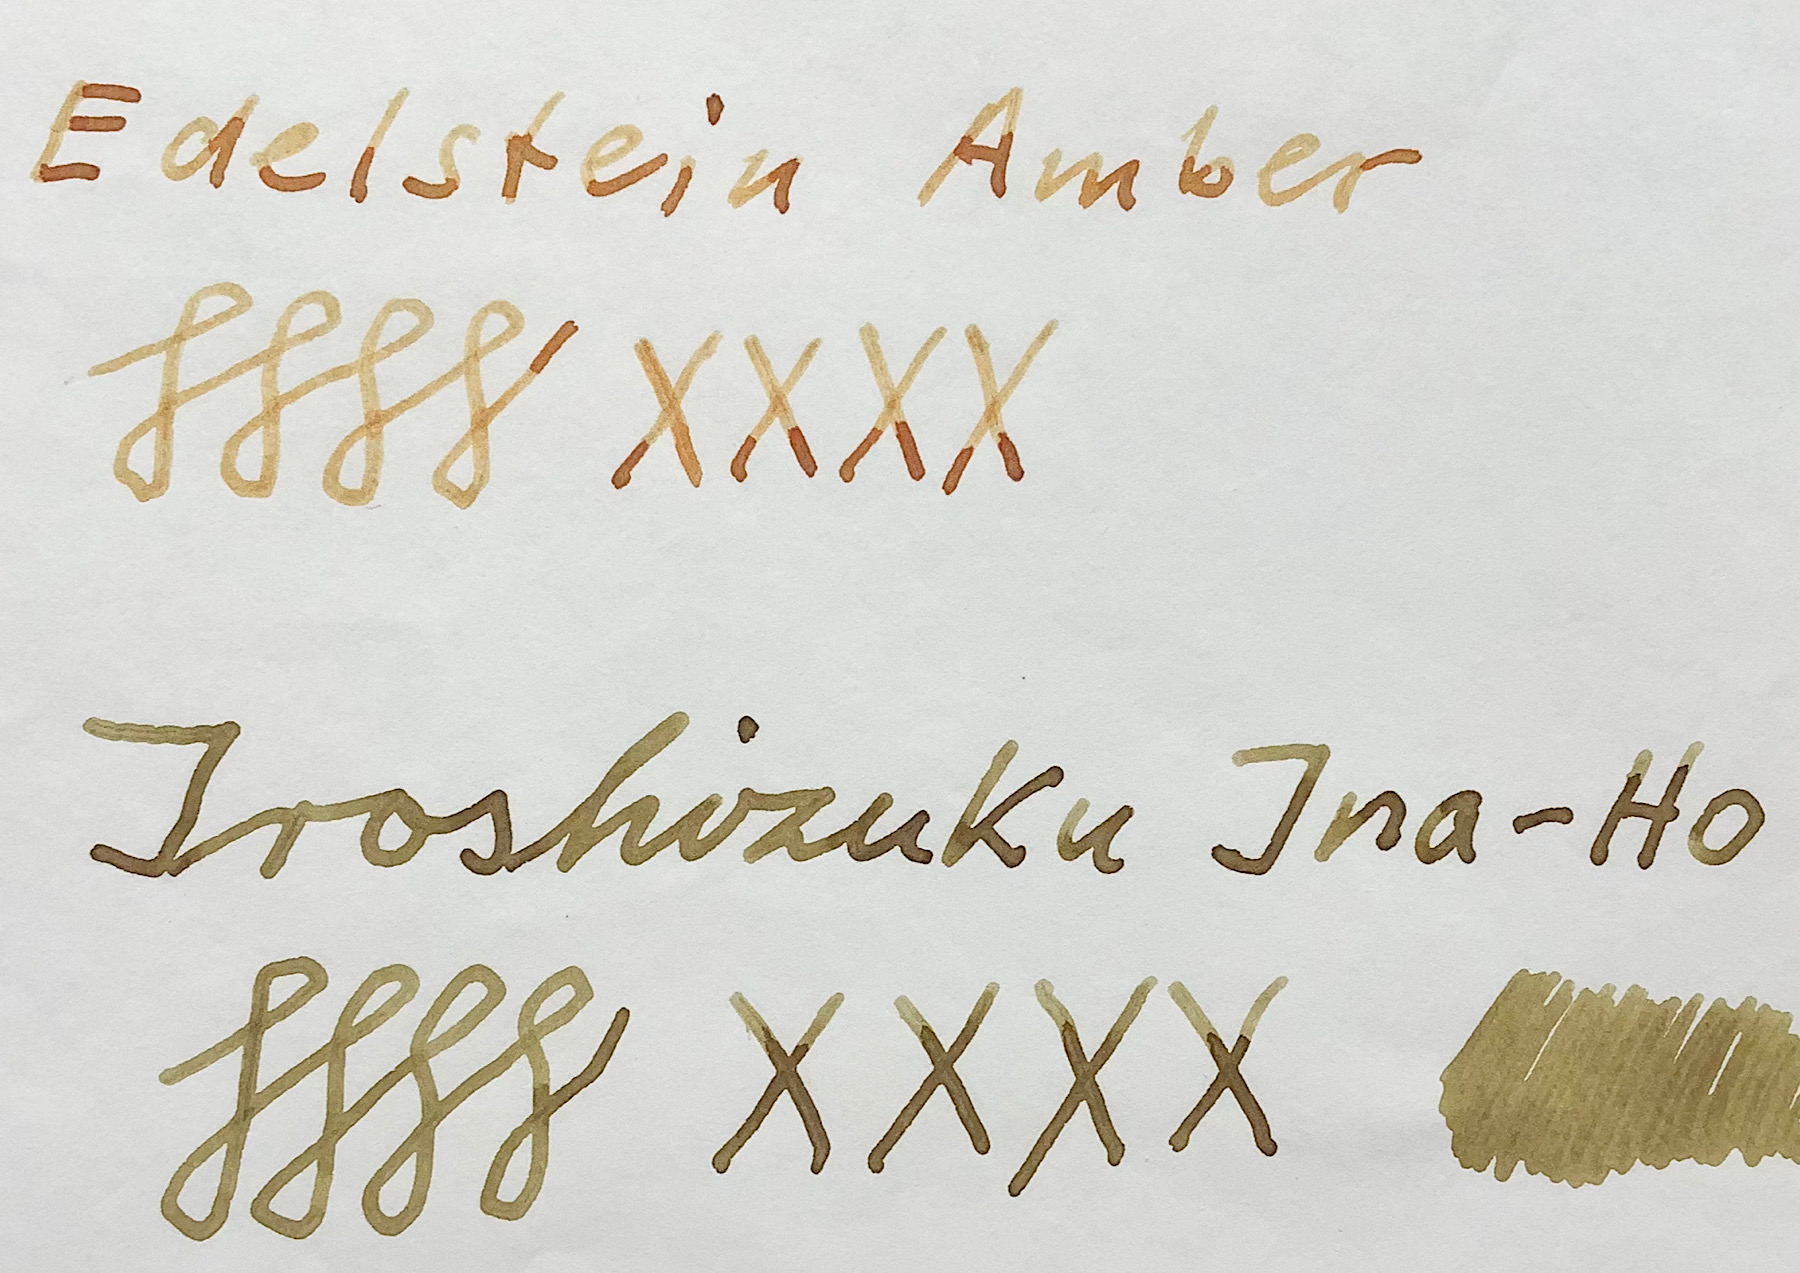 Edelstein Amber
xxxx
Iroshizuku Ina-Ho
xxxx